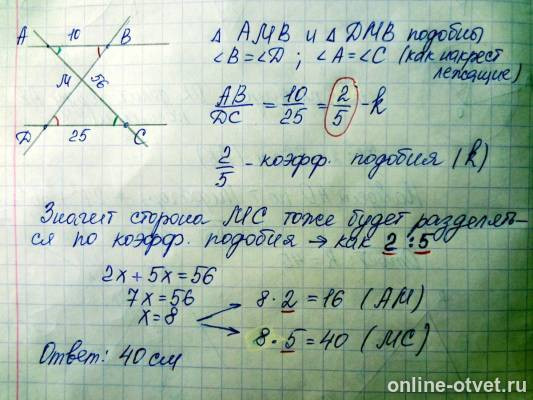 A 10 B
M 56
D 25 C
Δ AMB и Δ DMB подобны
∠B = ∠D ; ∠A = ∠C (как накрест
лежащие)
AB/DC = 10/25 = 2/5 - k
2/5 - коэфф. подобия (k)
Значит сторона MC тоже будет разделять-
ся по коэфф. подобия → как 2 : 5
2x + 5x = 56
7x = 56
x = 8
8 · 2 = 16 (AM)
8 · 5 = 40 (MC)
Ответ: 40 см
online-otvet.ru